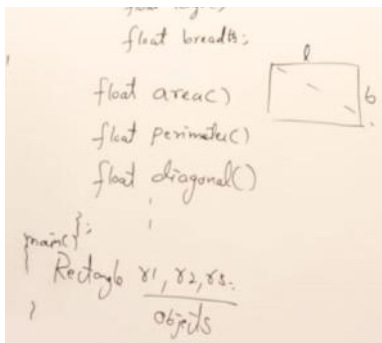 float breadth;
l
b
float area()
float perimeter()
float diagonal()
};
main()
{
Rectangle r1, r2, rs.
objects
}